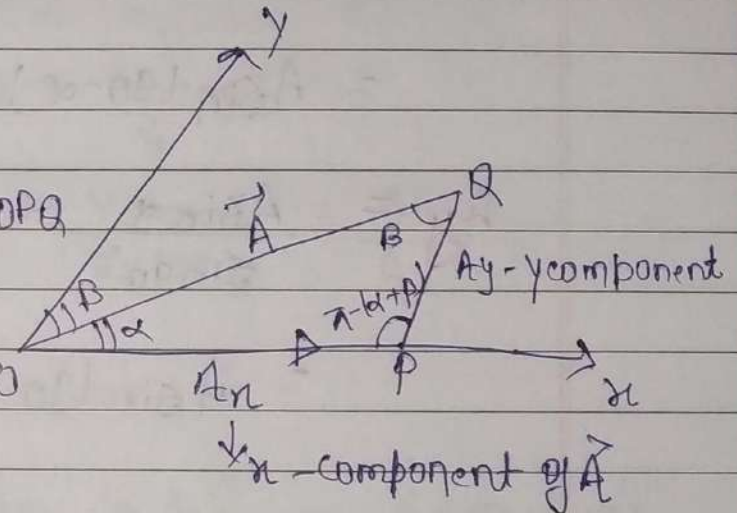 y
OPQ
Q
A
B
Ay - y component
β
π-(α+β)
α
O
Ax
P
x
x - component of A